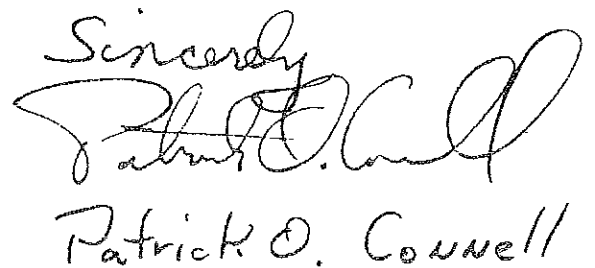 Sincerely
Patrick O. Connell
Patrick O. Connell